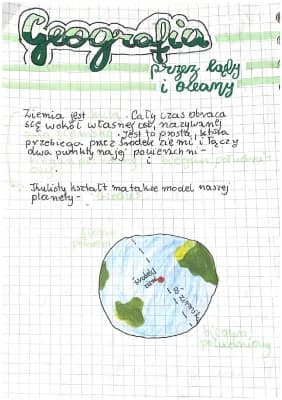 Geografia
przez lądy
i oleany
Ziemia jest . Cały czas obraca
się wokół własnej osi, nazywanej
. Jest to prosta, która
przebiega przez środek ziemi i łączy
dwa punkty na jej powierzchni -
i
Kulisty kształt ma także model naszej
planety -
biegun
północny
środek
ziemi
biegun
południowy